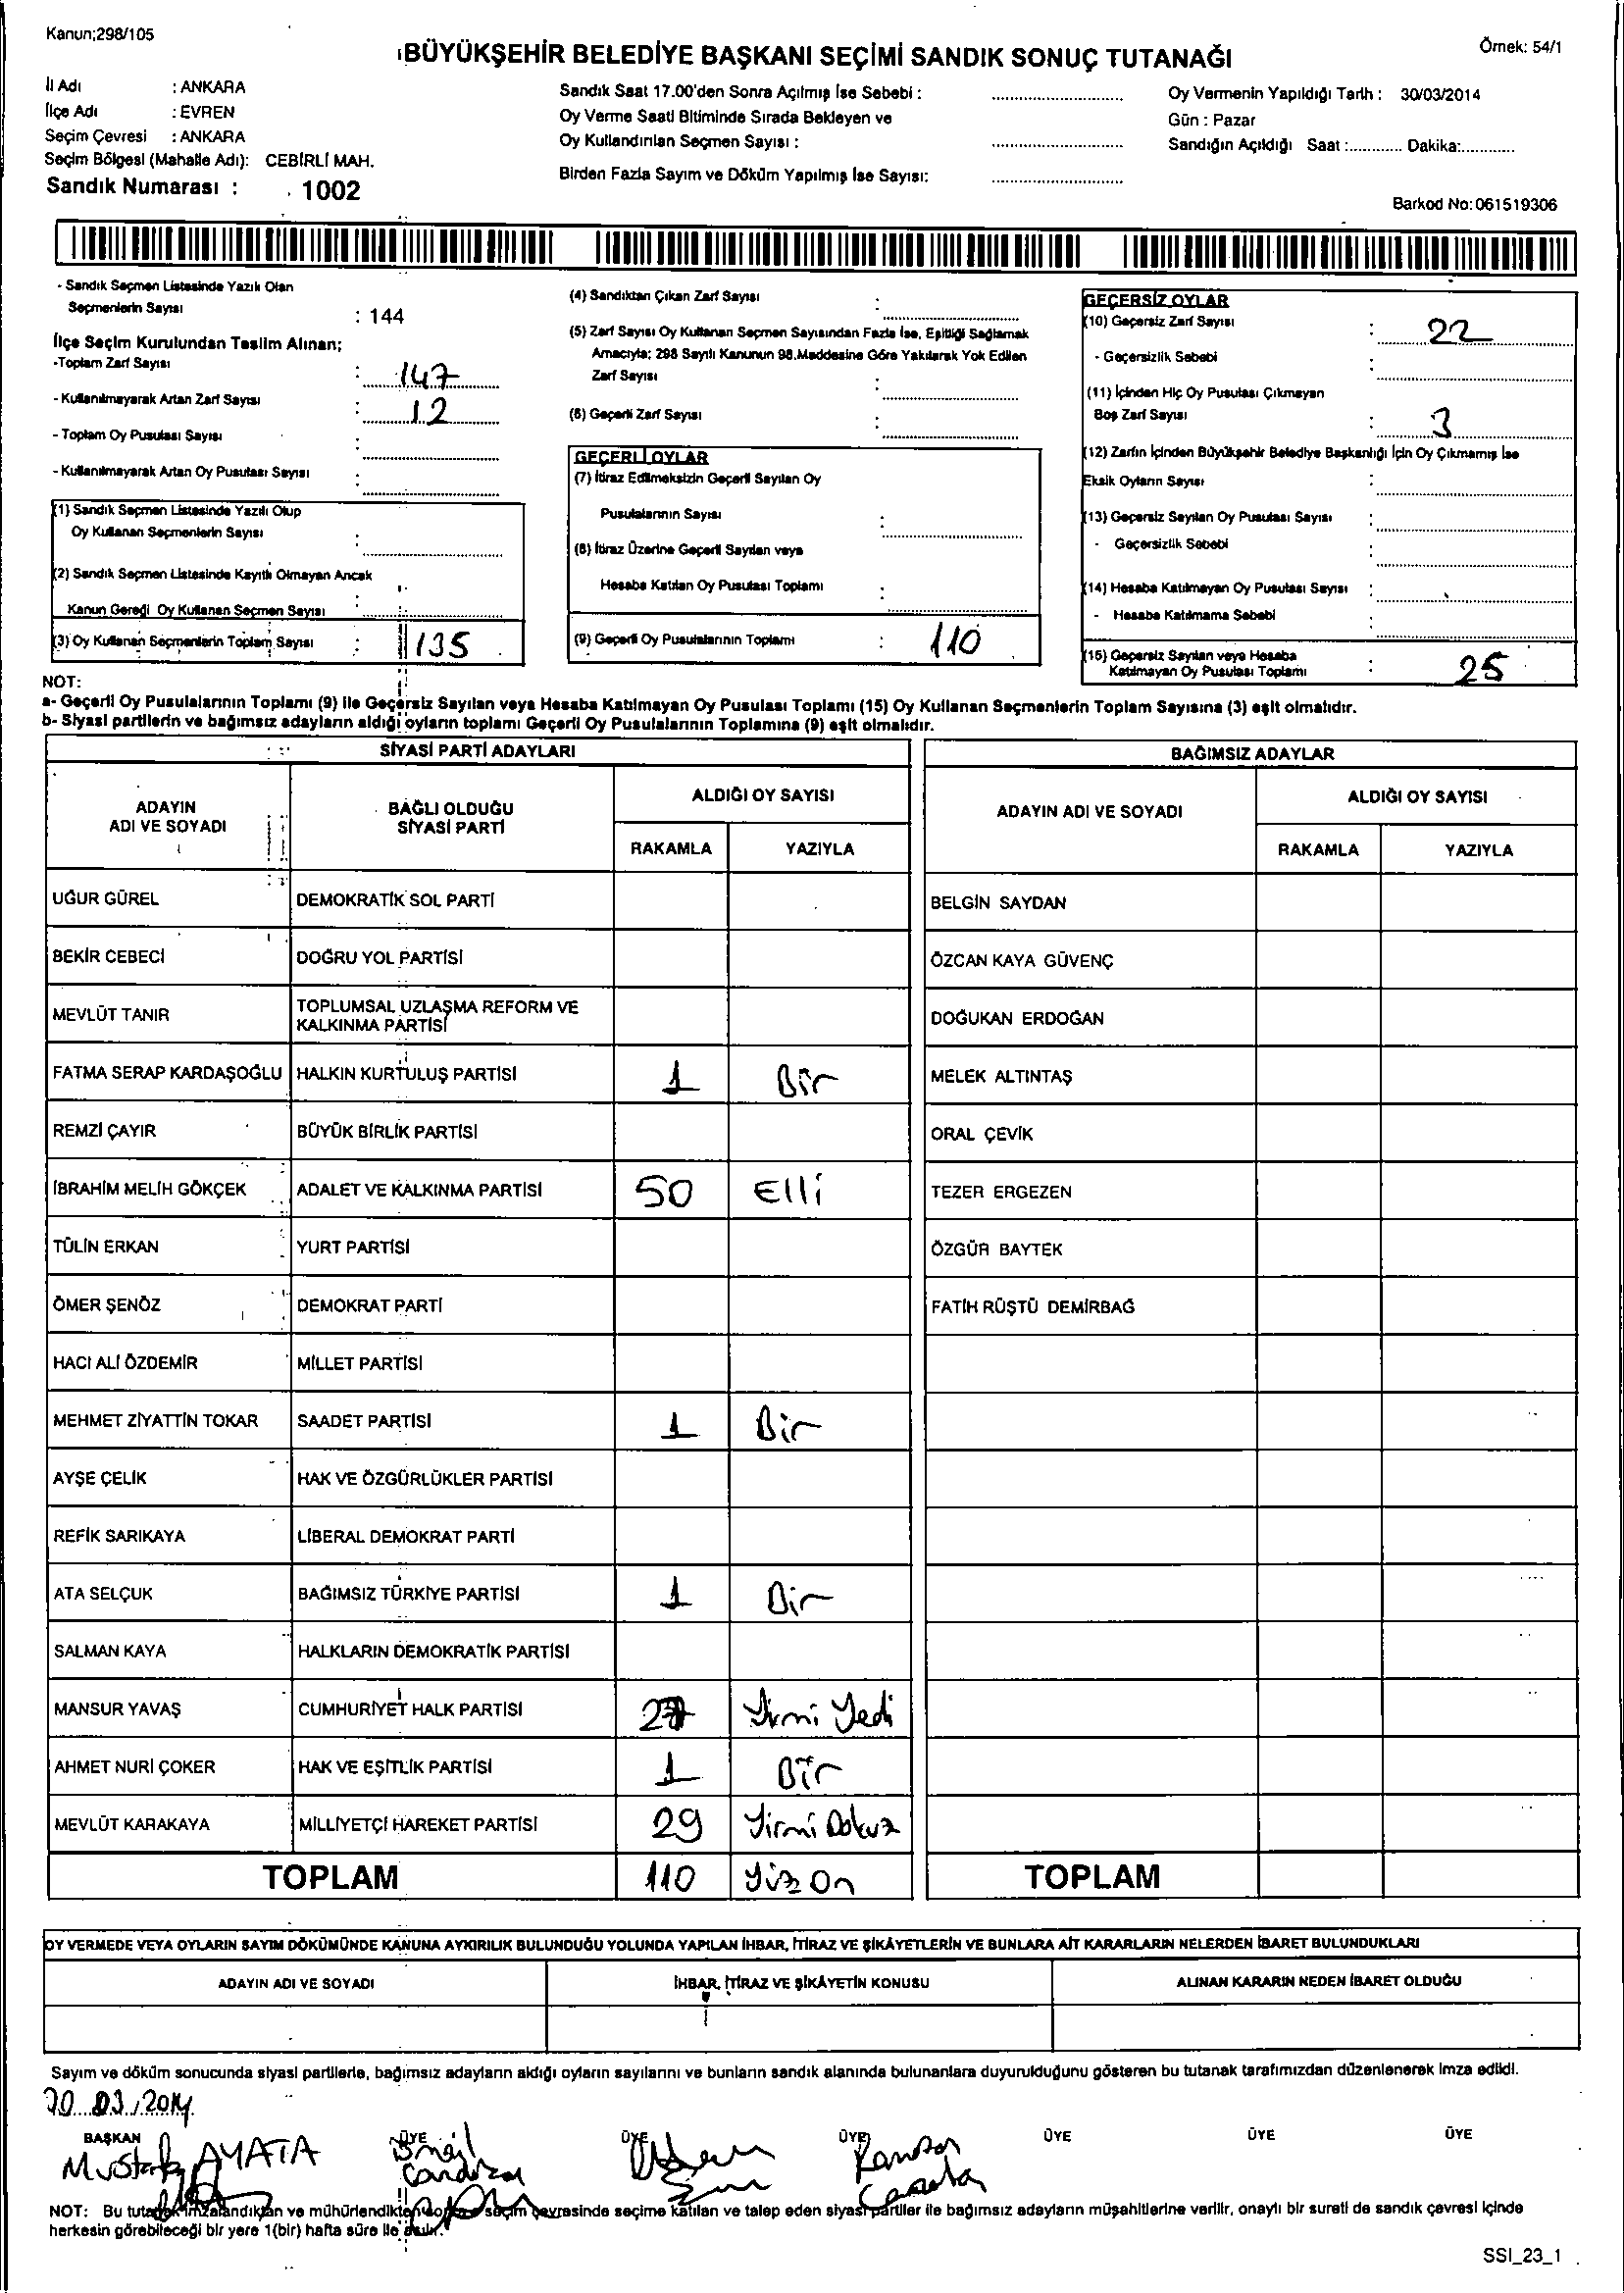 Kanun;298/105
BÜYÜKŞEHİR BELEDİYE BAŞKANI SEÇİMİ SANDIK SONUÇ TUTANAĞI
Örnek: 54/1
İl Adı : ANKARA
İlçe Adı : EVREN
Seçim Çevresi : ANKARA
Seçim Bölgesi (Mahalle Adı): CEBİRLİ MAH.
Sandık Numarası : 1002
Sandık Saat 17.00'den Sonra Açılmış İse Sebebi : ..........
Oy Verme Saati Bitiminde Sırada Bekleyen ve
Oy Kullandırılan Seçmen Sayısı : ..........
Birden Fazla Sayım ve Döküm Yapılmış İse Sayısı: ..........
Oy Vermenin Yapıldığı Tarih : 30/03/2014
Gün : Pazar
Sandığın Açıldığı Saat :............ Dakika:............
Barkod No: 061519306
- Sandık Seçmen Listesinde Yazılı Olan
Seçmenlerin Sayısı : 144
İlçe Seçim Kurulundan Teslim Alınan;
-Toplam Zarf Sayısı : 147
- Kullanılmayarak Artan Zarf Sayısı : 12
- Toplam Oy Pusulası Sayısı :
- Kullanılmayarak Artan Oy Pusulası Sayısı :
(1) Sandık Seçmen Listesinde Yazılı Olup
Oy Kullanan Seçmenlerin Sayısı :
(2) Sandık Seçmen Listesinde Kayıtlı Olmayan Ancak
Kanun Gereği Oy Kullanan Seçmen Sayısı :
(3) Oy Kullanan Seçmenlerin Toplam Sayısı : 135
(4) Sandıktan Çıkan Zarf Sayısı :
(5) Zarf Sayısı Oy Kullanan Seçmen Sayısından Fazla İse, Eşitliği Sağlamak
Amacıyla; 298 Sayılı Kanunun 98.Maddesine Göre Yakılarak Yok Edilen
Zarf Sayısı :
(6) Geçerli Zarf Sayısı :
GEÇERLİ OYLAR
(7) İtiraz Edilmeksizin Geçerli Sayılan Oy
Pusulalarının Sayısı :
(8) İtiraz Üzerine Geçerli Sayılan veya
Hesaba Katılan Oy Pusulası Toplamı :
(9) Geçerli Oy Pusulalarının Toplamı : 110
GEÇERSİZ OYLAR
(10) Geçersiz Zarf Sayısı : 22
- Geçersizlik Sebebi :
(11) İçinden Hiç Oy Pusulası Çıkmayan
Boş Zarf Sayısı : 3
(12) Zarfın İçinden Büyükşehir Belediye Başkanlığı İçin Oy Çıkmamış İse
Eksik Oyların Sayısı :
(13) Geçersiz Sayılan Oy Pusulası Sayısı :
- Geçersizlik Sebebi :
(14) Hesaba Katılmayan Oy Pusulası Sayısı :
- Hesaba Katılmama Sebebi :
(15) Geçersiz Sayılan veya Hesaba
Katılmayan Oy Pusulası Toplamı : 25
NOT:
a- Geçerli Oy Pusulalarının Toplamı (9) ile Geçersiz Sayılan veya Hesaba Katılmayan Oy Pusulası Toplamı (15) Oy Kullanan Seçmenlerin Toplam Sayısına (3) eşit olmalıdır.
b- Siyasi partilerin ve bağımsız adayların aldığı oyların toplamı Geçerli Oy Pusulalarının Toplamına (9) eşit olmalıdır.
SİYASİ PARTİ ADAYLARI
BAĞIMSIZ ADAYLAR
ADAYIN ADI VE SOYADI
BAĞLI OLDUĞU SİYASİ PARTİ
ALDIĞI OY SAYISI
RAKAMLA YAZIYLA
ADAYIN ADI VE SOYADI
ALDIĞI OY SAYISI
RAKAMLA YAZIYLA
UĞUR GÜREL DEMOKRATİK SOL PARTİ BELGİN SAYDAN
BEKİR CEBECİ DOĞRU YOL PARTİSİ ÖZCAN KAYA GÜVENÇ
MEVLÜT TANIR TOPLUMSAL UZLAŞMA REFORM VE KALKINMA PARTİSİ DOĞUKAN ERDOĞAN
FATMA SERAP KARDAŞOĞLU HALKIN KURTULUŞ PARTİSİ 1 Bir MELEK ALTINTAŞ
REMZİ ÇAYIR BÜYÜK BİRLİK PARTİSİ ORAL ÇEVİK
İBRAHİM MELİH GÖKÇEK ADALET VE KALKINMA PARTİSİ 50 Elli TEZER ERGEZEN
TÜLİN ERKAN YURT PARTİSİ ÖZGÜR BAYTEK
ÖMER ŞENÖZ DEMOKRAT PARTİ FATİH RÜŞTÜ DEMİRBAĞ
HACI ALİ ÖZDEMİR MİLLET PARTİSİ
MEHMET ZİYATTİN TOKAR SAADET PARTİSİ 1 Bir
AYŞE ÇELİK HAK VE ÖZGÜRLÜKLER PARTİSİ
REFİK SARIKAYA LİBERAL DEMOKRAT PARTİ
ATA SELÇUK BAĞIMSIZ TÜRKİYE PARTİSİ 1 Bir
SALMAN KAYA HALKLARIN DEMOKRATİK PARTİSİ
MANSUR YAVAŞ CUMHURİYET HALK PARTİSİ 27 Yirmi Yedi
AHMET NURİ ÇOKER HAK VE EŞİTLİK PARTİSİ 1 Bir
MEVLÜT KARAKAYA MİLLİYETÇİ HAREKET PARTİSİ 29 Yirmi Dokuz
TOPLAM 110 Yüz On TOPLAM
OY VERMEDE VEYA OYLARIN SAYIM DÖKÜMÜNDE KANUNA AYKIRILIK BULUNDUĞU YOLUNDA YAPILAN İHBAR, İTİRAZ VE ŞİKÂYETLERİN VE BUNLARA AİT KARARLARIN NELERDEN İBARET BULUNDUKLARI
ADAYIN ADI VE SOYADI İHBAR, İTİRAZ VE ŞİKÂYETİN KONUSU ALINAN KARARIN NEDEN İBARET OLDUĞU
Sayım ve döküm sonucunda siyasi partilerle, bağımsız adayların aldığı oyların sayılarını ve bunların sandık alanında bulunanlara duyurulduğunu gösteren bu tutanak tarafımızdan düzenlenerek imza edildi.
30.03.2014
BAŞKAN ÜYE ÜYE ÜYE ÜYE ÜYE ÜYE
Mustafa AYATA İsmail
NOT: Bu tutanak imzalandıktan ve mühürlendikten sonra seçim çevresinde seçime katılan ve talep eden siyasi partiler ile bağımsız adayların müşahitlerine verilir, onaylı bir sureti de sandık çevresi içinde
herkesin görebileceği bir yere 1(bir) hafta süre ile asılır.
SSI_23_1